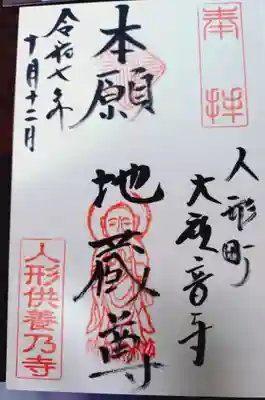 奉拝
人形町
大観音寺
本願
地蔵尊
令和七年
十月十二日
人形供養乃寺